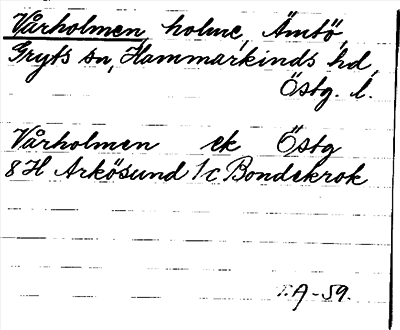 Vårholmen, holme, Ämtö,
Gryts sn, Hammarkinds hd,
Östg. l.
Vårholmen ek Östg
8 H Arkösund 1c Bondekrok
T.A-59.